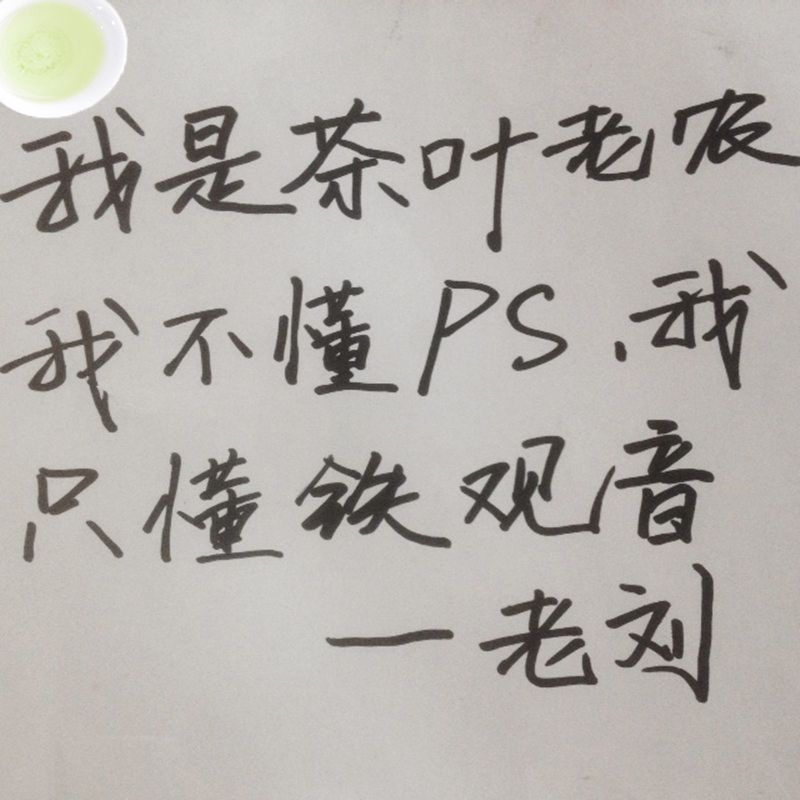 我是茶叶老农
我不懂PS、我
只懂铁观音
一老刘